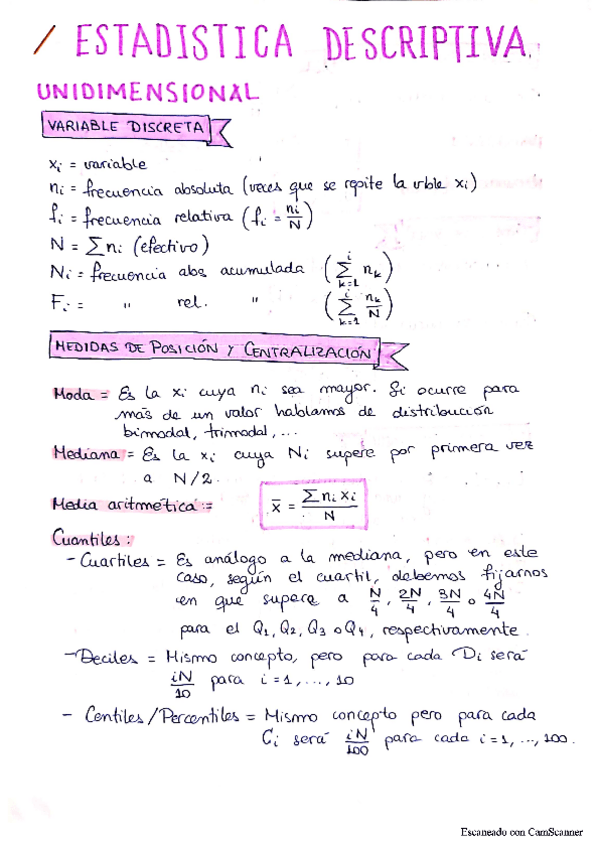 / ESTADISTICA DESCRIPTIVA.
UNIDIMENSIONAL
VARIABLE DISCRETA
xi = variable
ni = frecuencia absoluta (veces que se repite la vble xi)
fi = frecuencia relativa (fi = ni/N)
N = Σni (efectivo)
Ni = frecuencia abs. acumulada (Σ_{k=1}^{i} nk)
Fi = " rel. " (Σ_{k=1}^{i} nk/N)
MEDIDAS DE POSICIÓN Y CENTRALIZACIÓN
Moda = Es la xi cuya ni sea mayor. Si ocurre para
más de un valor hablamos de distribución
bimodal, trimodal, ...
Mediana = Es la xi cuya Ni supere por primera vez
a N/2.
Media aritmética := x̄ = Σ ni xi / N
Cuantiles:
- Cuartiles = Es análogo a la mediana, pero en este
caso, según el cuartil, debemos fijarnos
en que supere a N/4, 2N/4, 3N/4 o 4N/4
para el Q1, Q2, Q3 o Q4, respectivamente.
- Deciles = Mismo concepto, pero para cada Di será
iN/10 para i=1, ..., 10
- Centiles/Percentiles = Mismo concepto pero para cada
Ci será iN/100 para cada i=1, ..., 100.
Escaneado con CamScanner